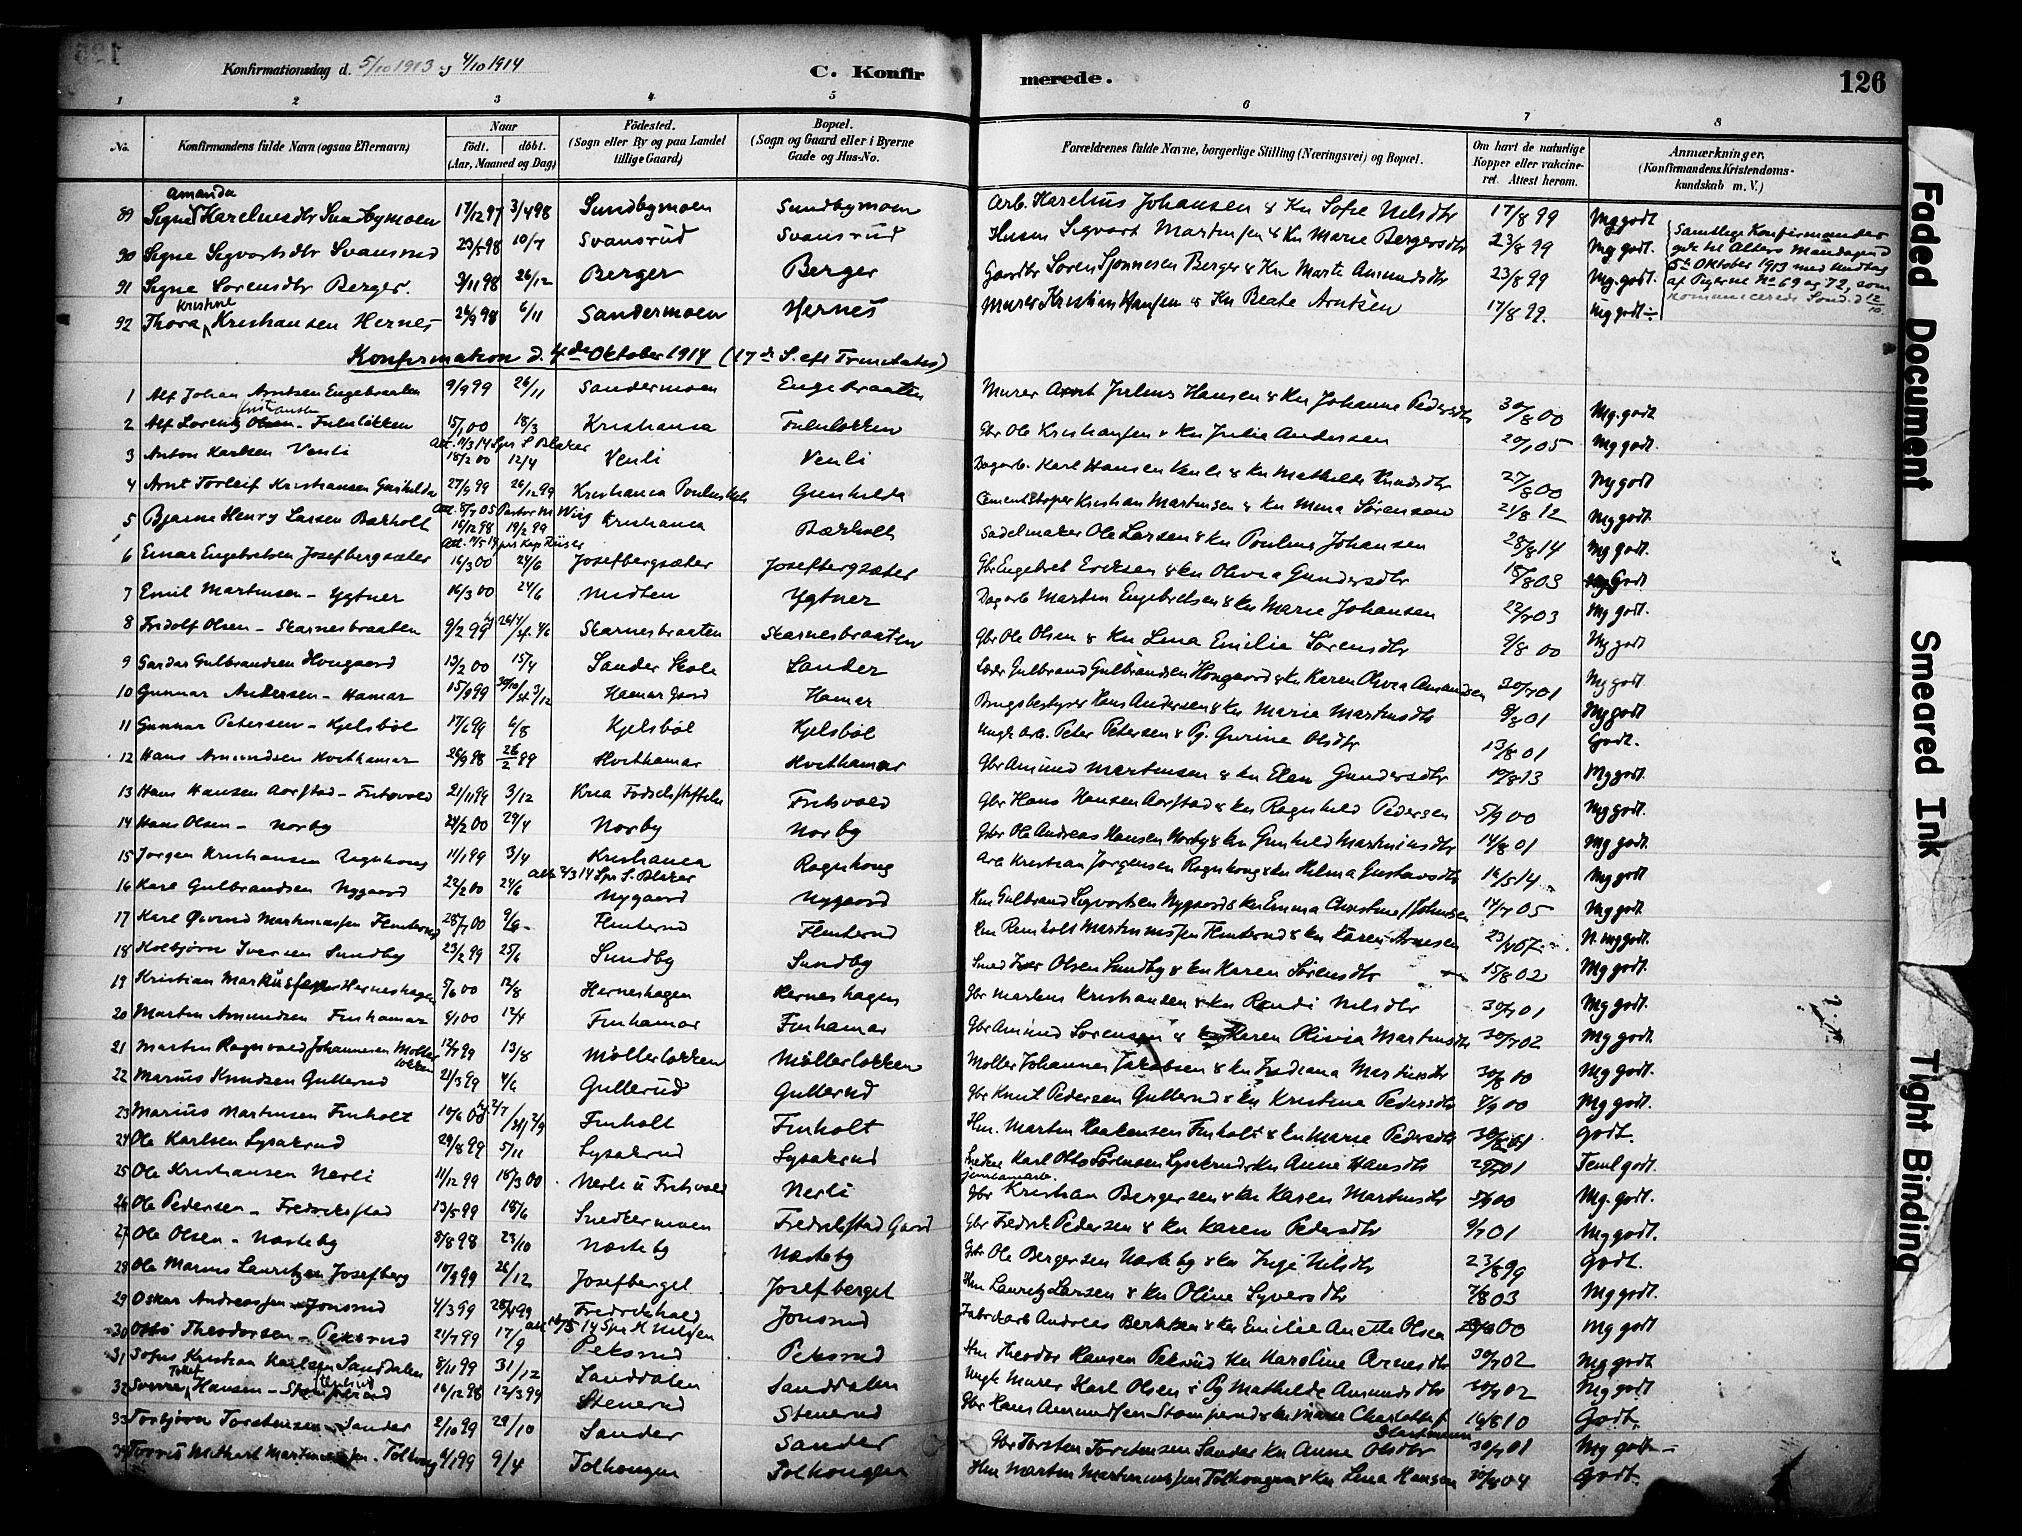 Konfirmationsdag d. 5/10 1913 og 4/10 1914
C. Konfir
merede.
126
1 2 3 4 5 6 7 8
No.
Konfirmandens fulde Navn (ogsaa Efternavn)
Naar
født. døbt.
(Aar, Maaned og Dag)
Födested.
(Sogn eller By og paa Landet
tillige Gaard)
Bopæl.
(Sogn og Gaard eller i Byerne
Gade og Hus-No.
Forældrenes fulde Navne, borgerlige Stilling (Næringsvei) og Bopæl.
Om havt de naturlige
Kopper eller vakcine-
ret. Attest herom.
Anmærkninger,
(Konfirmandens Kristendoms-
kundskab m. V.)
Amanda
89 Signe Kareliusdtr Sundbymoen 17/12 97 3/4 98 Sundbymoen Sundbymoen Arb. Karelius Johansen & Kn Sofie Nilsdtr 17/8 99 Mg godt.
90 Signe Sigvartsdtr Svansrud 23/5 98 10/7 Svansrud Svansrud Husm Sigvart Martinsen & Kn Marie Bergersdtr 23/8 99 Mg godt.
91 Signe Sørensdtr Berger. 9/11 98 26/12 Berger Berger Gaardbr Søren Simensen Berger & Kn Marte Amundsdtr 23/8 99 Mg. godt.
Kristine
92 Thora Kristiansen Hernes 26/9 98 6/11 Sandermoen Hernes Murer Kristian Hansen & Kn Beate Arntsen 17/8 99. Mg godt ÷
Samtlige Konfirmander
gik til Alters Mandagen d
5te Oktober 1913 med Undtag
af Pigerne No 69 og 72, som
kommunicerede Sønd. d 12/10.
Konfirmation d. 4de Oktober 1914 (17de S. eft Trinitatis)
1 Alf Johan Arntsen Engebraaten 9/9 99 26/11 Sandermoen Engebraaten Murer Arnt Julius Hansen & Kn Johanne Pedersdtr 30/8 00 Mg. godt
Kristiansen
2 Alf Lorentz Olsen - Fululøkken 15/1 00 18/3 Kristiania Fululøkken Gbr Ole Kristiansen & Kn Julie Andersen 20/1 05 Mg godt.
Att. 11/3 14 Spr S. Blaker
3 Anton Karlsen Venli 18/2 00 12/4 Venli Venli Dagarb. Karl Hansen Venli & Kn Mathilde Knudsdtr 27/8 00 Mg godt
4 Arnt Torleif Kristiansen Gunhilda 27/9 99 26/12 99 Kristiania Gunhilda Cementstøper Kristian Martinsen & Kn Mina Sørensen 21/8 12 Mg godt.
Att. 8/9 05 Pastor M Wiig
5 Bjarne Henry Larsen Bærholt 16/12 98 19/2 99 Kristiania Bærholt Sadelmaker Ole Larsen & Kn Pouline Johansen 28/8 14 Mg godt.
6 Einar Engebretsen Josefbergsæter 16/3 00 24/6 Josefbergsæter Josefbergsæter Gbr Engebret Eriksen & Kn Olivia Gundersdtr 18/8 03 Godt
7 Emil Martinsen - Ygtner 16/3 00 24/6 Midten Ygtner Dagarb Martin Engebretsen & Kn Marie Johansen 22/7 03 Mg godt.
8 Fridolf Olsen - Skarnesbraaten 9/2 99 26/4 st. 4/6 Skarnesbraaten Skarnesbraaten Gbr Ole Olsen & Kn Lina Emilie Sørensdtr 9/8 00 Mg godt
9 Gardar Gulbrandsen Hougaard 13/2 00 15/4 Sander Skole Sander Lærer Gulbrand Gulbrandsen Hougaard & Kn Karen Olivia Amundsen 30/7 01 Mg godt.
10 Gunnar Andersen - Hamar 15/9 99 30/10 st 3/12 Hamar Gaard Hamar Brugsbestyrer Hans Andersen & Kn Marie Martinsdtr 8/8 01 Mg godt
11 Gunnar Petersen - Kjelsbøl 17/6 99 6/8 Kjelsbøl Kjelsbøl Ungk arb. Peter Petersen & Pg. Gurine Olsdtr 13/8 01 Godt.
12 Hans Amundsen Hvithamar 26/9 98 26/2 99 Hvithamar Hvithamar Gbr Amund Martinsen & Kn Elen Gundersdtr 19/8 13 Mg godt.
13 Hans Hansen Aarstad - Fritsvold 21/11 99 3/12 Kria Fødselsstiftelse Fritsvold Gbr Hans Hansen Aarstad & Kn Ragnhild Pedersen 5/9 00 Mg godt.
14 Hans Olsen - Norby 24/2 00 29/4 Norby Norby Gbr Ole Andreas Hansen Norby & Kn Gunhild Martinusdtr 14/8 01 Mg godt.
15 Jørgen Kristiansen Rognhoug 11/1 99 3/4 Kristiania Rognhoug Arb Kristian Jørgensen Rognhoug & Kn Helma Gustavsdtr 16/5 14 Mg godt
Att. 2/3 14 Spr. S. Blaker
16 Karl Gulbrandsen Nygaard 22/2 00 24/6 Nygaard Nygaard Hm Gulbrand Sigvartsen Nygaard & Kn Emma Christine Johnsen 14/7 05 Mg godt.
17 Karl Øivind Martinussen Flinterud 28/7 00 9/9 Flinterud Flinterud Hm Reinholt Martinussen Flinterud & Kn Karen Arnesen 23/8 07 N. mg godt.
18 Kolbjørn Iversen Sundby 23/2 99 25/6 Sundby Sundby Smed Iver Olsen Sundby & Kn Karen Sørensdtr 15/8 02 Mg godt.
19 Kristian Markussen Herneshagen 5/6 00 12/8 Herneshagen Herneshagen Gbr Markus Kristiansen & Kn Randi Nilsdtr 30/7 01 Mg godt
20 Martin Amundsen Finhamar 8/1 00 12/4 Finhamar Finhamar Gbr Amund Sørensen & Karen Olivia Martinsdtr 30/7 02 Mg godt.
21 Martin Ragnvald Johannesen Møller 12/7 99 13/8 Møllerløkken Møllerløkken Møller Johannes Jakobsen & Kn Indiana Martinsdtr 30/8 00 Mg godt.
løkken
22 Marius Knudsen Gullerud 21/3 99 4/6 Gullerud Gullerud Gbr Knut Pedersen Gullerud & Kn Kristine Pedersdtr 8/9 00 Mg godt.
23 Marius Martinsen Finholt 10/6 00 2/7 st 2/9 Finholt Finholt Hm. Martin Haakensen Finholt & Kn Marie Pedersdtr 30/8 01 Godt.
24 Ole Karlsen Lysakrud 29/8 99 5/11 Lysakrud Lysakrud Snedker Karl Otto Sørensen Lysakrud & Kn Anne Hansdtr 29/7 01 Teml godt.
25 Ole Kristiansen Nerli 11/12 99 18/3 00 Nerli u Fritsvold Nerli Gbr Kristian Bergersen & Kn Karen Martinsdtr 5/9 00 Mg. godt.
26 Ole Pedersen - Fredrikstad 13/5 99 18/6 Snedkermoen Fredrikstad Gaard Gbr Fredrik Pedersen & Kn Karen Pedersdtr 9/7 01 Mg godt.
27 Ole Olsen - Næsteby 8/8 98 23/10 Næsteby Næsteby Gbr Ole Bergersen Næsteby & Kn Inge Nilsdtr 23/8 99 Godt.
28 Ole Marius Lauritzen Josefberg 10/9 99 26/12 Josefberget Josefberget Hm Lauritz Larsen & Kn Oline Syversdtr 7/8 03 Mg godt.
29 Oskar Andreassen Jonsrud 4/3 99 28/5 99 Fredrikshald Jonsrud Fabrikarb Andreas Berntsen & Kn Emilie Anette Olsen 00 Mg godt
30 Otto Theodorsen - Peksrud 21/7 99 17/9 Peksrud Peksrud Hm Theodor Hansen Peksrud Kn Karoline Arnesdtr 30/7 02 Mg godt
31 Sofus Kristian Karlsen Sanddalen 8/11 99 31/12 Sanddalen Sanddalen Ungk Murer Karl Olsen & Pg Mathilde Amundsdtr 30/9 02 Mg godt
32 Sverre Hansen - 16/12 98 12/3 99 Stenerud Stenerud Gbr Hans Amundsen Stomperud & Kn Marie Charlotte 16/8 10 Godt.
33 Torbjørn Torstensen Sander 2/10 99 29/10 Sander Sander Gbr Torsten Torstensen Sander Kn Anne Olsdtr 30/7 01 Mg godt -
34 Martinussen - Tolhoug 6/1 99 9/4 Tolhougen Tolhougen Hm Martin Martinussen Tolhougen & Kn Lina Hansen 30/8 04 Godt.
Faded Document
Smeared Ink
Tight Binding